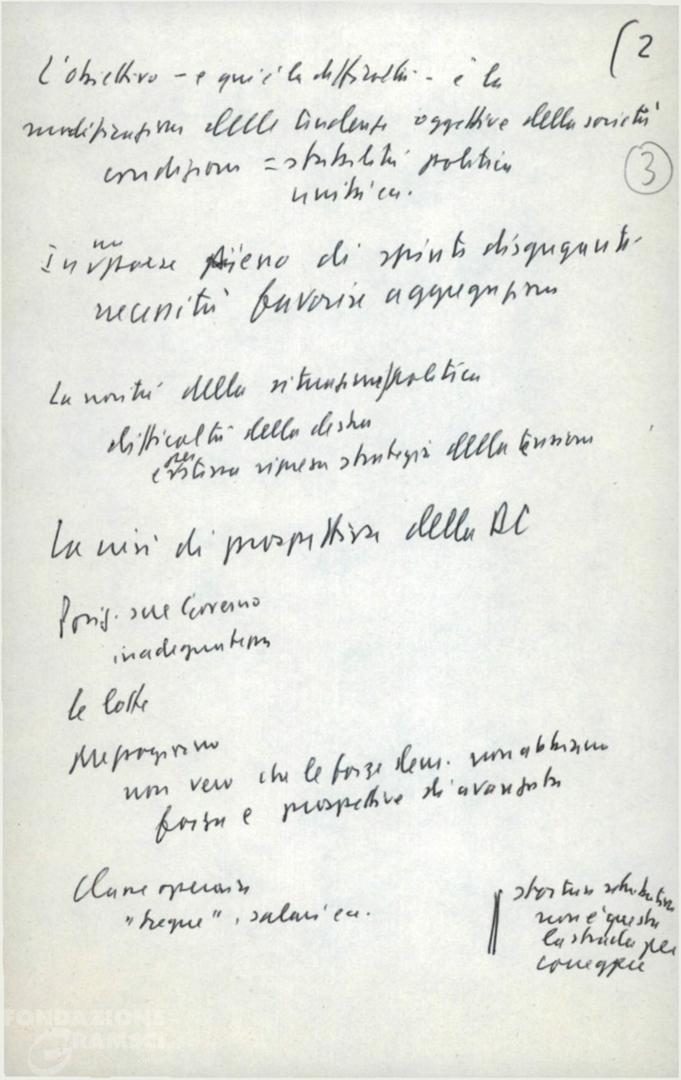 (2
L'obiettivo - e qui è la difficoltà - è la
modificazione delle tendenze oggettive della società
3
condizione = stabilità politica
unitaria.
In un paese pieno di spinte disgreganti
necessità favorire aggregazione
La novità della situazione politica
difficoltà della destra
per ripresa strategia della tensione
La crisi di prospettiva della DC
Posiz. sul Governo
inadeguatezza
Le lotte
Mezzogiorno
non vero che le forze dem. non abbiano
forza e prospettive di avanzata
Classe operaia
"tregue", salari ecc.
non è questa
la strada per
correggere
FONDAZIONE
GRAMSCI